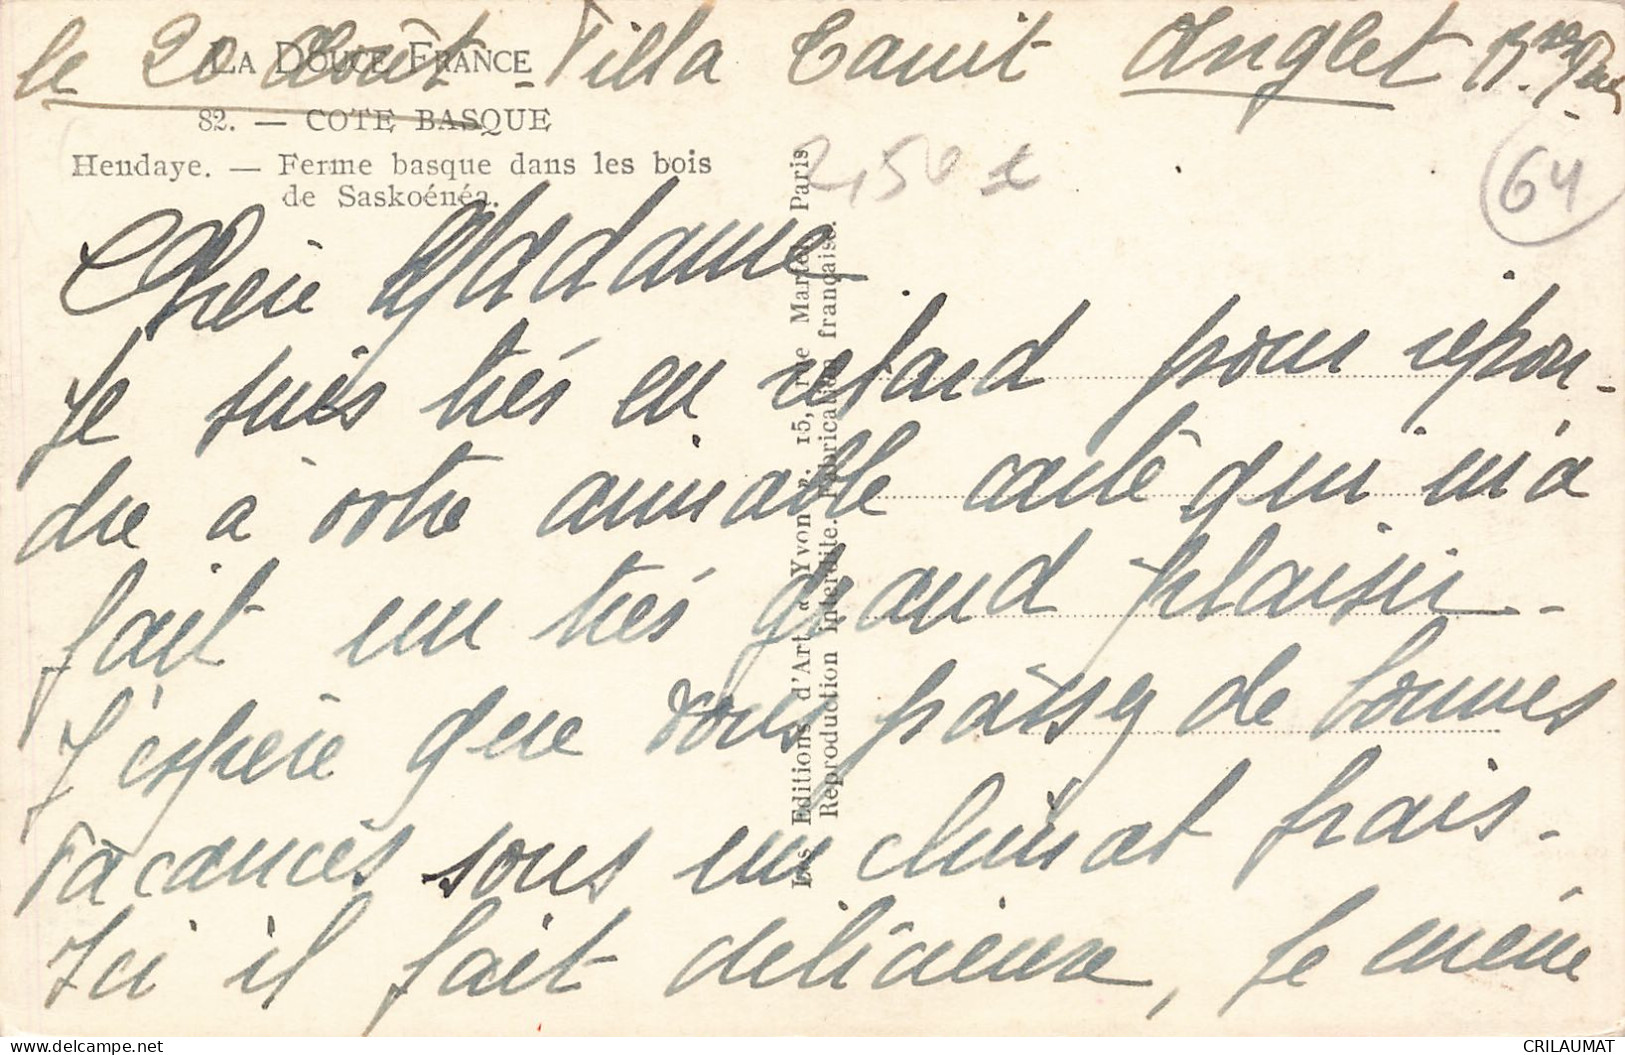 le 20 Août - Villa Tanit Anglet Bses Pyr
LA DOUCE FRANCE
82. — COTE BASQUE
Hendaye. — Ferme basque dans les bois
de Saskoénéa.
2,50 €
64
Les Editions d'Art "Yvon", 15, rue Martel, Paris
Reproduction interdite. Fabrication française.
Chère Madame
Je suis très en retard pour répon-
dre à votre aimable carte qui m'a
fait un très grand plaisir -
J'espère que vous passez de bonnes
vacances sous un climat frais.
Ici il fait délicieux, je mène
delcampe.net
CRILAUMAT